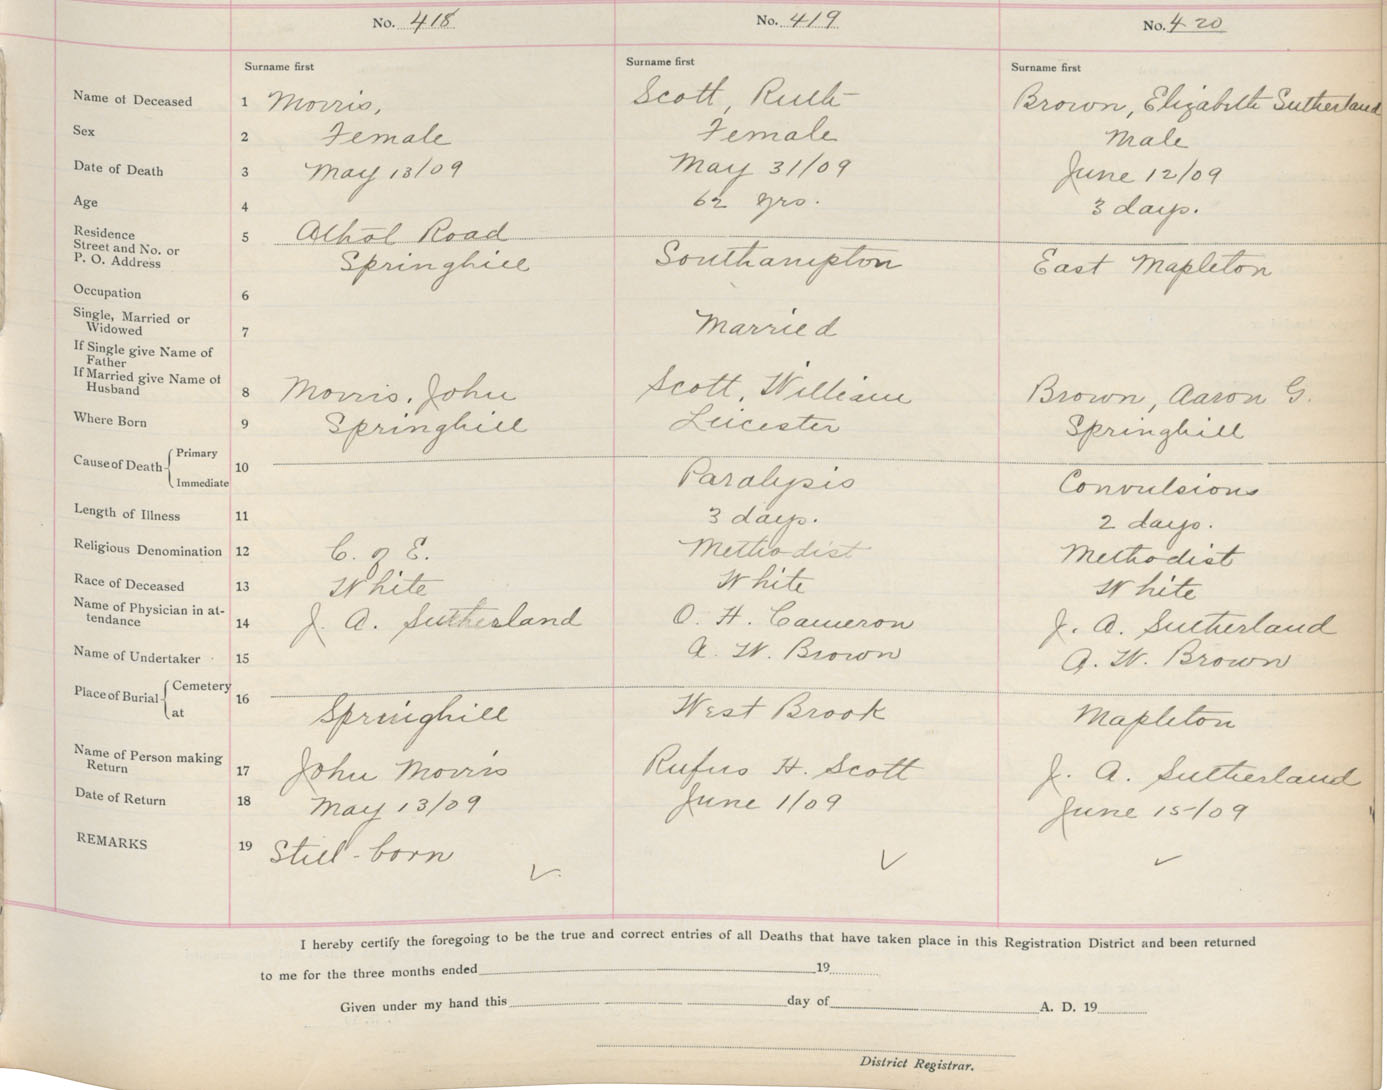 No. 418 No. 419 No. 420
Surname first Surname first Surname first
Name of Deceased 1 Morris, Scott, Ruth Brown, Elizabeth Sutherland
Sex 2 Female Female Male
Date of Death 3 May 13/09 May 31/09 June 12/09
Age 4 62 yrs. 3 days.
Residence Street and No. or P. O. Address 5 Athol Road
Springhill Southampton East Mapleton
Occupation 6
Single, Married or Widowed 7 Married
If Single give Name of Father
If Married give Name of Husband 8 Morris, John Scott, William Brown, Aaron G.
Where Born 9 Springhill Leicester Springhill
Cause of Death Primary Immediate 10 Paralysis Convulsions
Length of Illness 11 3 days. 2 days.
Religious Denomination 12 C. of E. Methodist Methodist
Race of Deceased 13 White White White
Name of Physician in at-tendance 14 J. A. Sutherland O. H. Cameron J. A. Sutherland
Name of Undertaker 15 A. W. Brown A. W. Brown
Place of Burial Cemetery at 16 Springhill West Brook Mapleton
Name of Person making Return 17 John Morris Rufus H. Scott J. A. Sutherland
Date of Return 18 May 13/09 June 1/09 June 15/09
REMARKS 19 Still-born
I hereby certify the foregoing to be the true and correct entries of all Deaths that have taken place in this Registration District and been returned
to me for the three months ended 19
Given under my hand this day of A. D. 19
District Registrar.